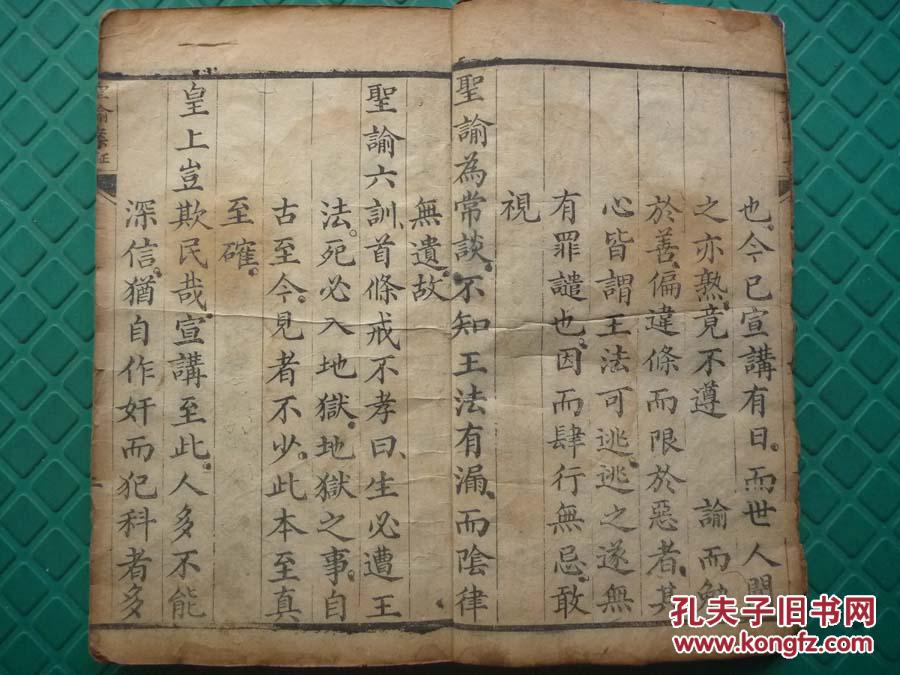 也。今已宣講有日。而世人聞
之亦熟。竟不遵　諭而勉
於善。偏違條而限於惡者。其
心皆謂王法可逃。逃之遂無
有罪譴也。因而肆行無忌。敢
視
聖諭為常談。不知王法有漏。而陰律
無遺。故
聖諭六訓、首條戒不孝曰、生必遭王
法。死必入地獄。地獄之事。自
古至今。見者不少。此本至真
至確。
皇上豈欺民哉。宣講至此。人多不能
深信。猶自作奸而犯科者多
聖諭集證
孔夫子旧书网
www.kongfz.com